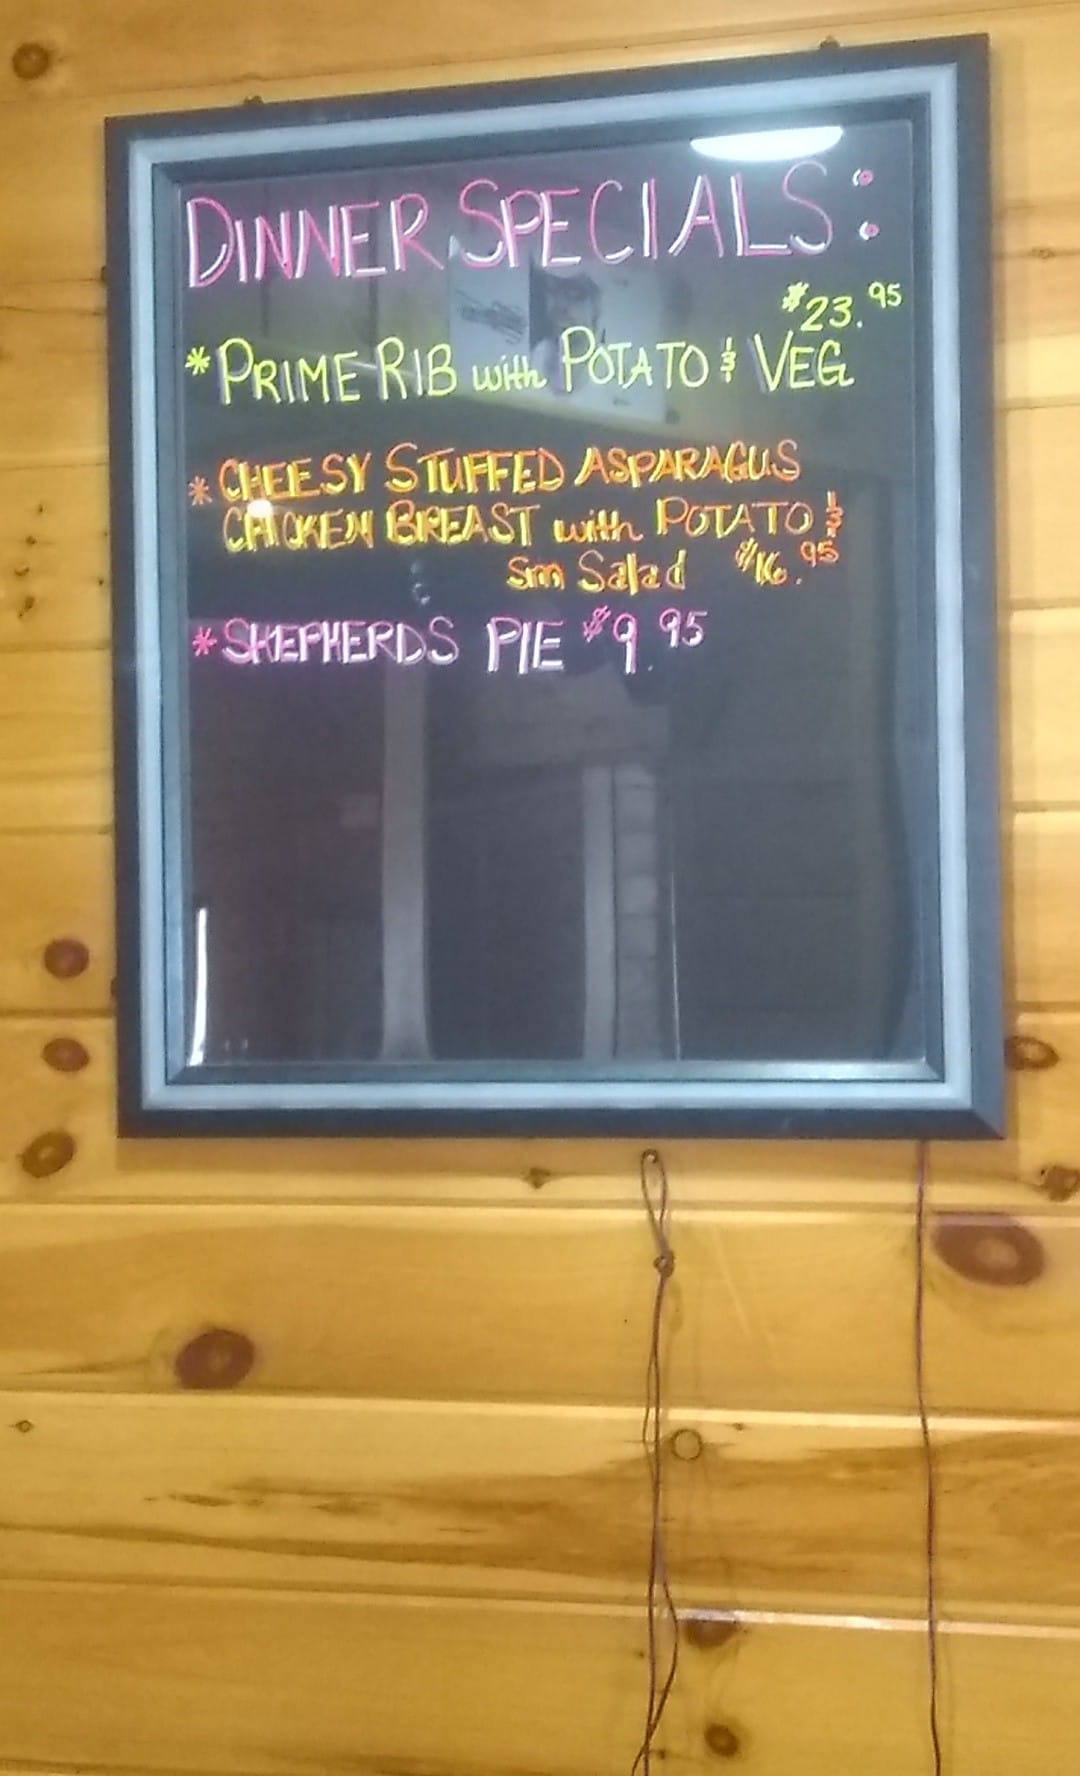 DINNER SPECIALS:
$23.95
*PRIME RIB with POTATO & VEG
*CHEESY STUFFED ASPARAGUS
CHICKEN BREAST with POTATO &
Sm Salad $16.95
*SHEPHERDS PIE $9.95